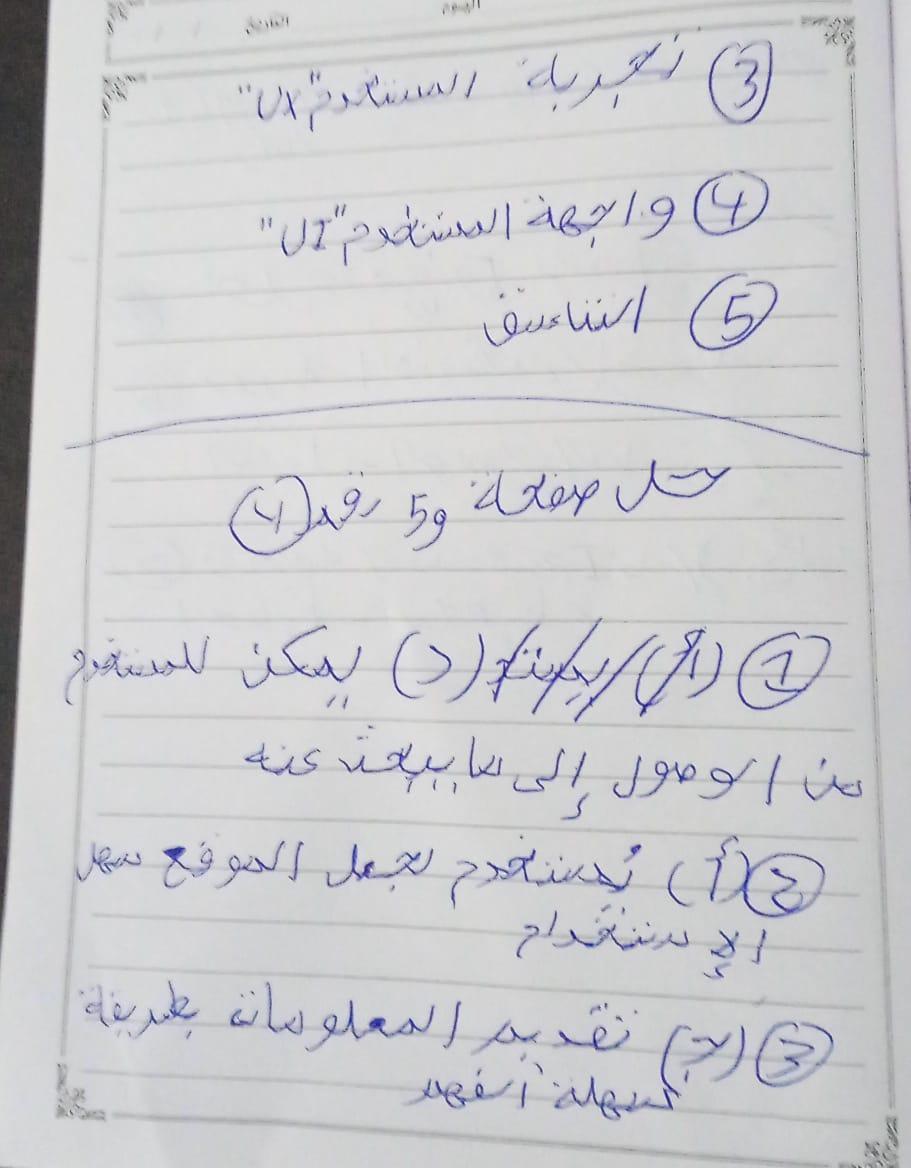 اليوم
التاريخ / /
③ تجربة المستخدم "UX"
④ واجهة المستخدم "UI"
⑤ التناسق
حل صفحة 59 رقم ④
① (د) يمكن للمستخدم
من الوصول إلى ما يبحث عنه
② (أ) تُستخدم لجعل الموقع سهل
الإستخدام
③ (ج) تقديم المعلومات بطريقة
سهلة الفهم